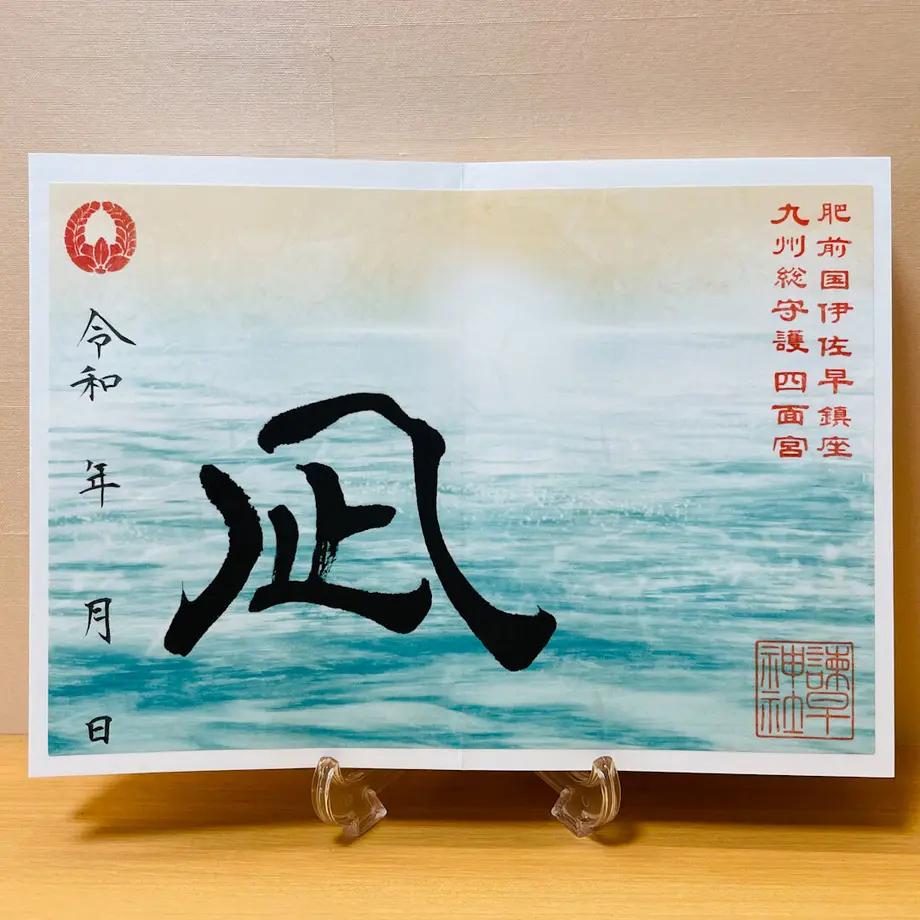 肥前国伊佐早鎮座
九州総守護 四面宮
凪
諫早
神社
令和 年 月 日